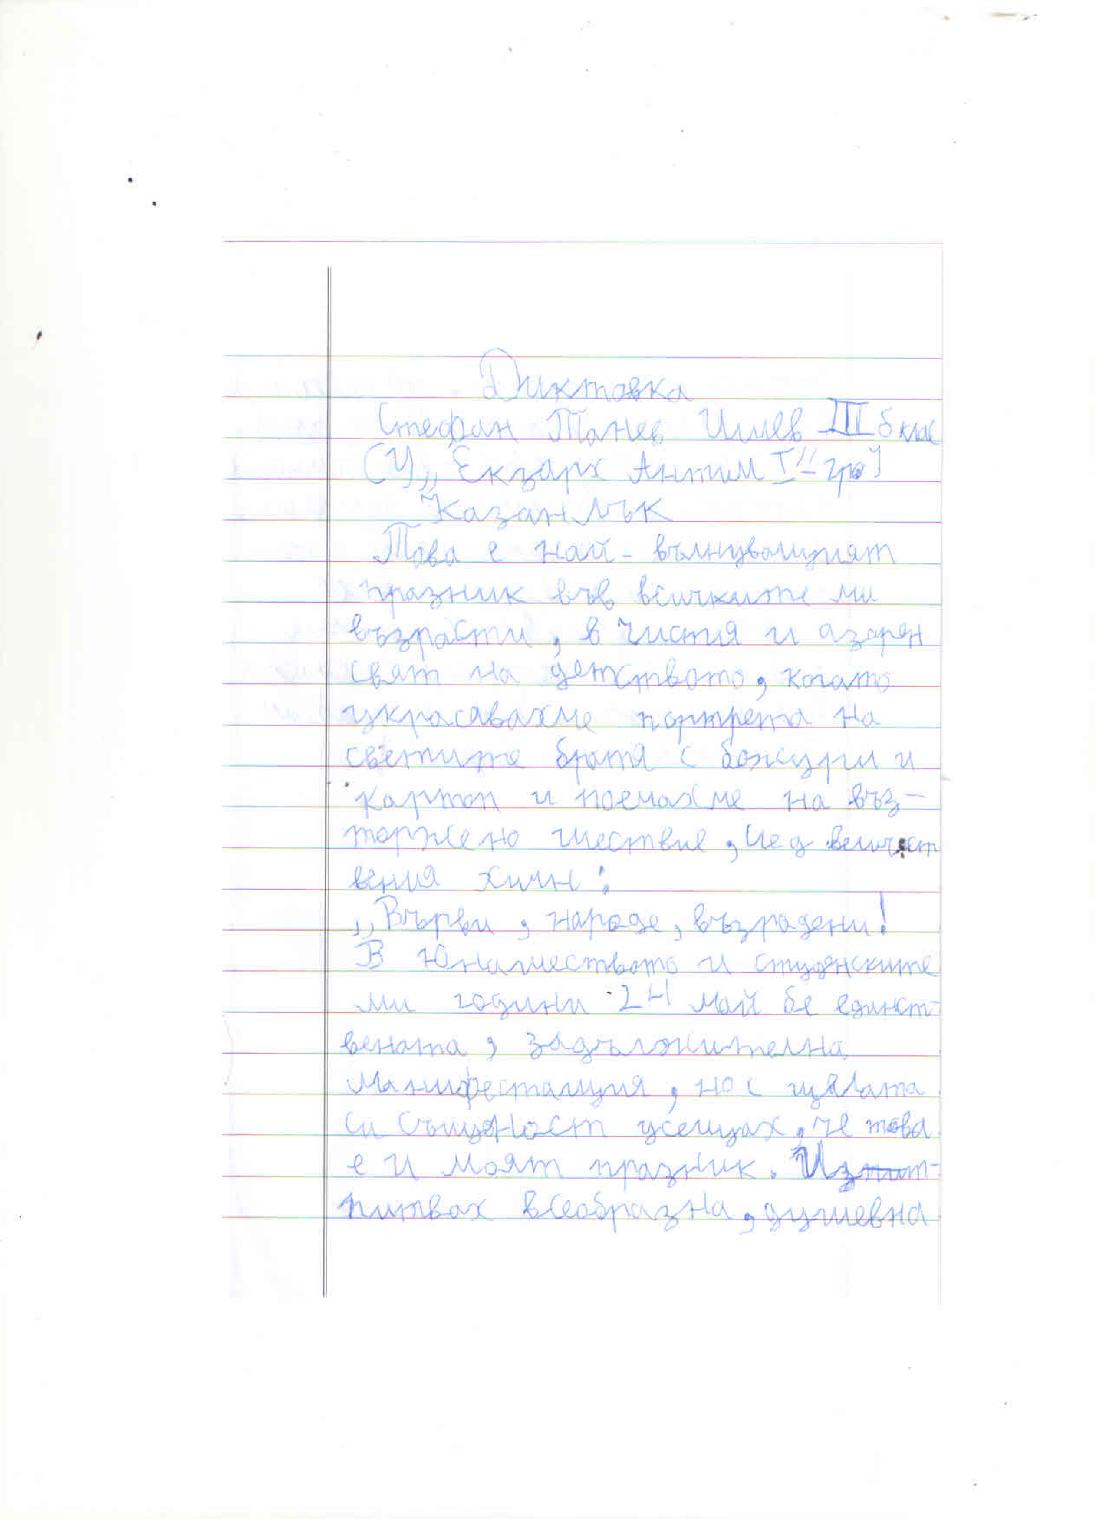 Диктовка
Стефан Танев Илиев III б клас
СУ „Екзарх Антим I" гр.
Казанлък
Това е най-вълнуващият
празник във всичките ми
възрасти, в чистия и азарен
свят на детството, когато
украсявахме портрета на
светите братя с божури и
картоп и поемахме на въз-
торжено шествие, след величест
вения химн:
„Върви, народе, възрадени!
В юнашеството и студенските
ми години 24 май бе единст-
вената, задължителна
манифестация, но с цялата
си същност усещах, че това
е и моят празник. Из
питвах всеобразна, душевна